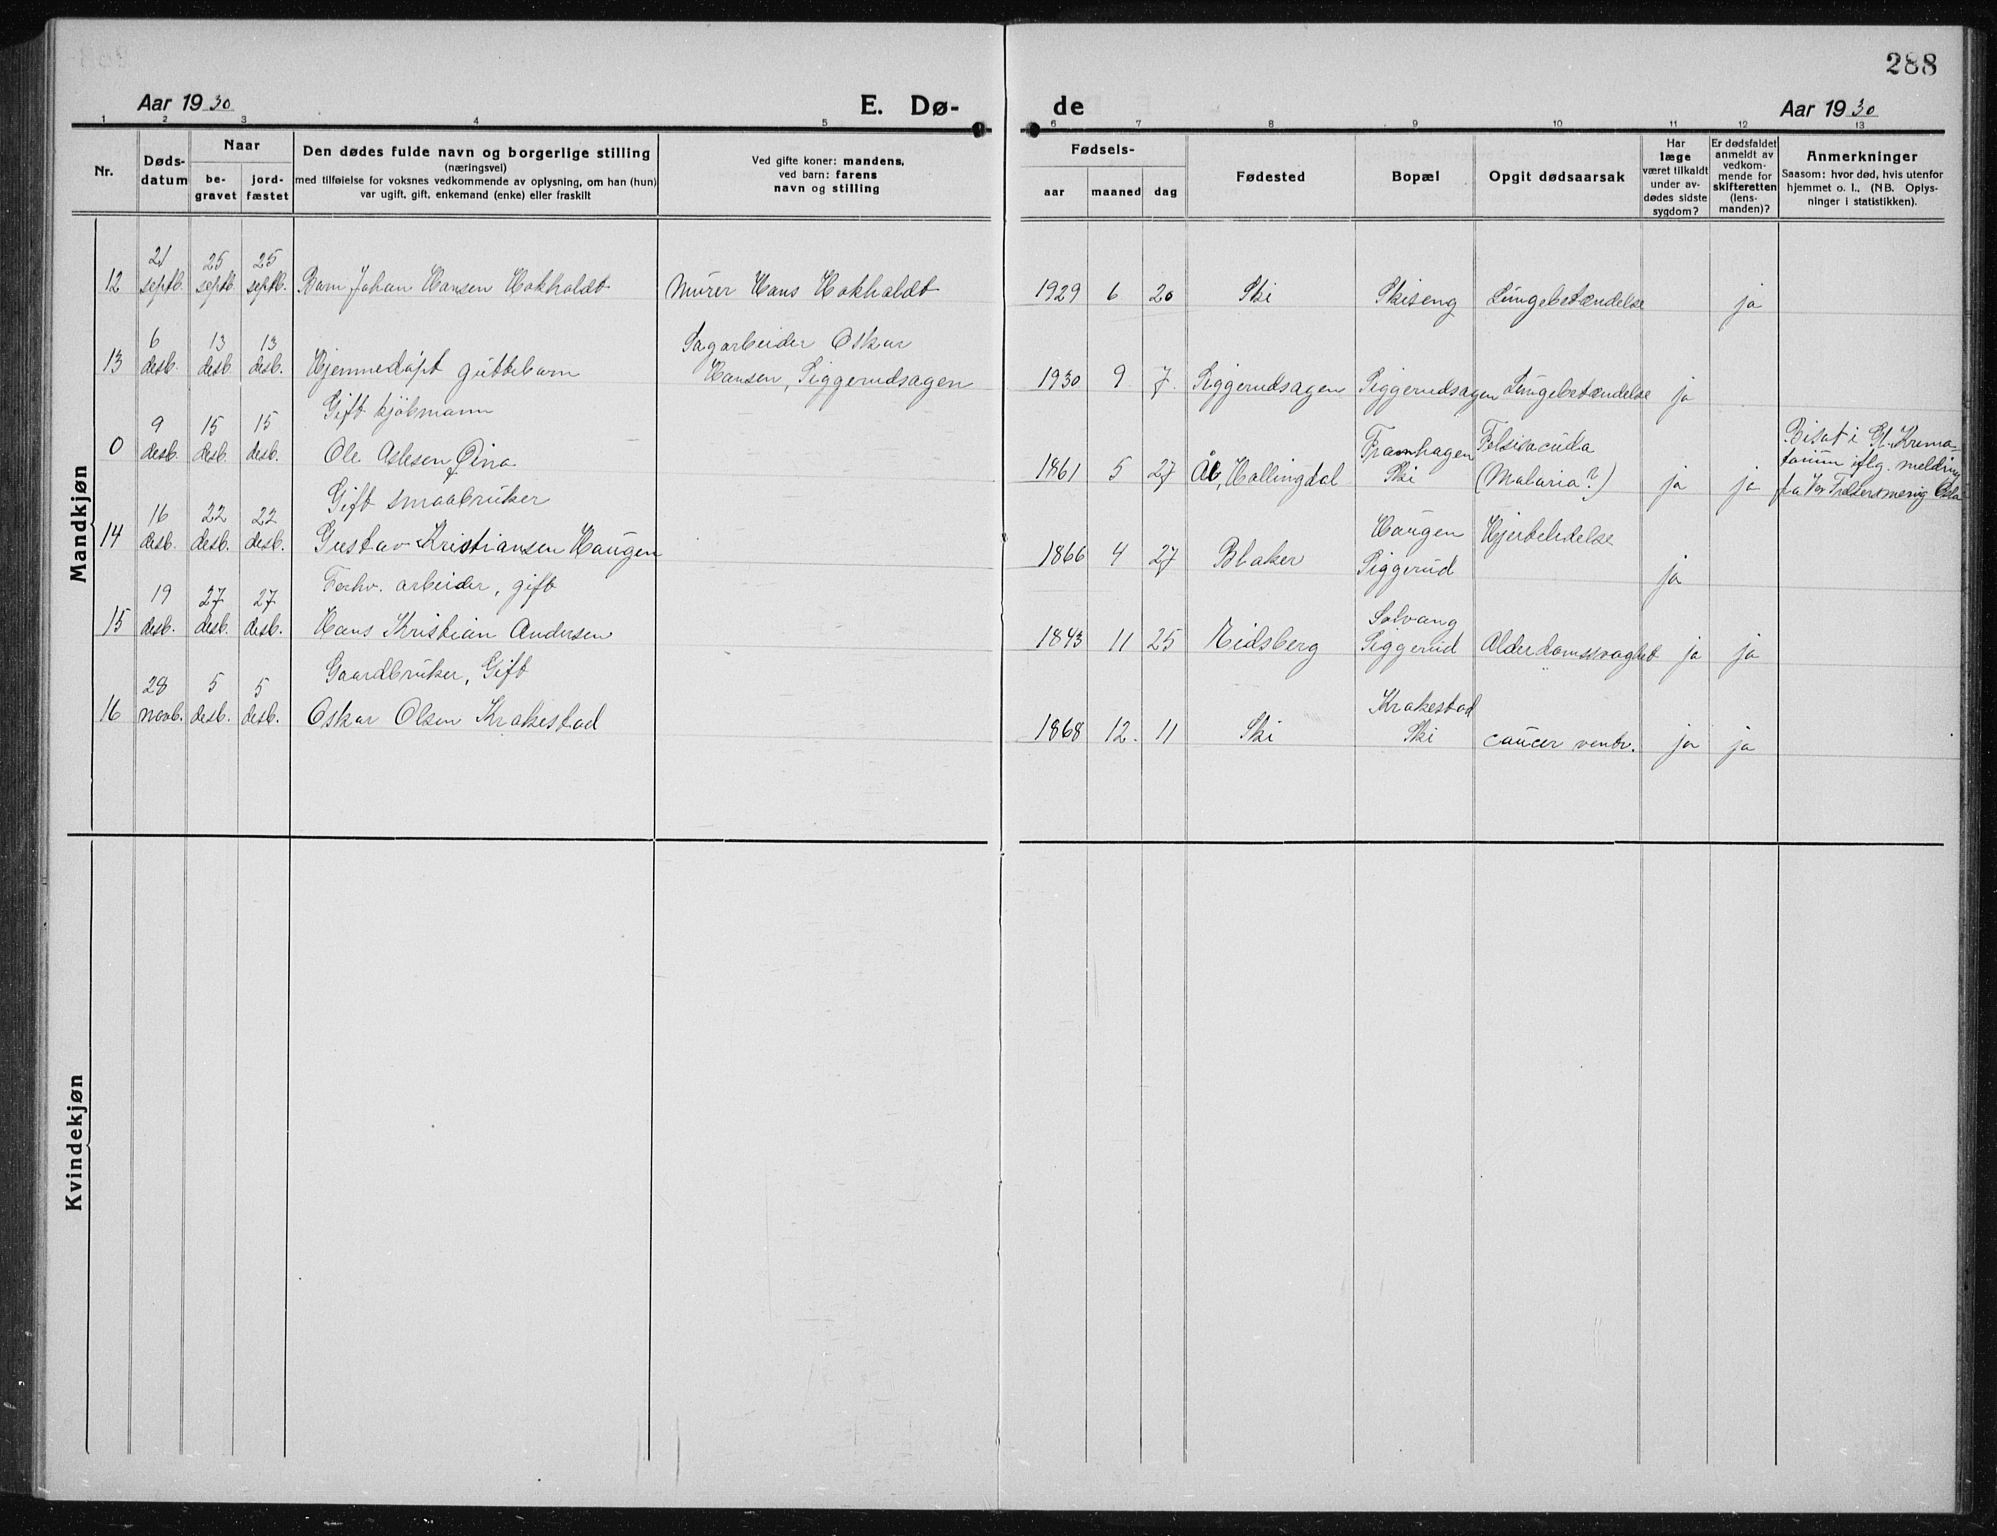 288
Aar 1930
E. Dø-
de
Aar 1930
1 2 3 4 5 6 7 8 9 10 11 12 13
Nr.
Døds-
datum
Naar
be-
gravet
jord-
fæstet
Den dødes fulde navn og borgerlige stilling
(næringsvei)
med tilføielse for voksnes vedkommende av oplysning, om han (hun)
var ugift, gift, enkemand (enke) eller fraskilt
Ved gifte koner: mandens,
ved barn: farens
navn og stilling
Fødsels-
aar
maaned
dag
Fødested
Bopæl
Opgit dødsaarsak
Har
læge
været tilkaldt
under av-
dødes sidste
sygdom?
Er dødsfaldet
anmeldt av
vedkom-
mende for
skifteretten
(lens-
manden)?
Anmerkninger
Saasom: hvor død, hvis utenfor
hjemmet o. l., (NB. Oplys-
ninger i statistikken).
Mandkjøn
12 21 septb. 25 septb. 25 septb. Barn Johan Hansen Hokholdt Murer Hans Hokholdt 1929 6 20 Ski Skiseng Lungebetændelse ja
Sagarbeider Oskar
13 6 desb. 13 desb. 13 desb. Hjemmedøpt guttebarn Hansen, Siggerudsagen 1930 9 7 Siggerudsagen Siggerudsagen Lungebetændelse ja
Gift kjøbmann
Framhagen
0 9 desb. 15 desb. 15 desb. Ole Aslesen 1861 5 27 Ål, Hallingdal Ski (Malaria?) ja ja
Bisat i Gl. Krema-
torium iflg. melding
fra
Gift smaabruker
Haugen Hjertelidelse
14 16 desb. 22 desb. 22 desb. Gustav Kristiansen Haugen 1866 4 27 Blaker Siggerud ja
Forhv. arbeider, gift
Solvang
15 19 desb. 27 desb. 27 desb. Hans Kristian Andersen 1843 11 25 Eidsberg Siggerud Alderdomssvaghet ja ja
Gaardbruker, Gift
Krakestad
16 28 novb. 5 desb. 5 desb. Oskar Olsen Krakestad 1868 12. 11 Ski Ski cancer ventr. ja ja
Kvindekjøn